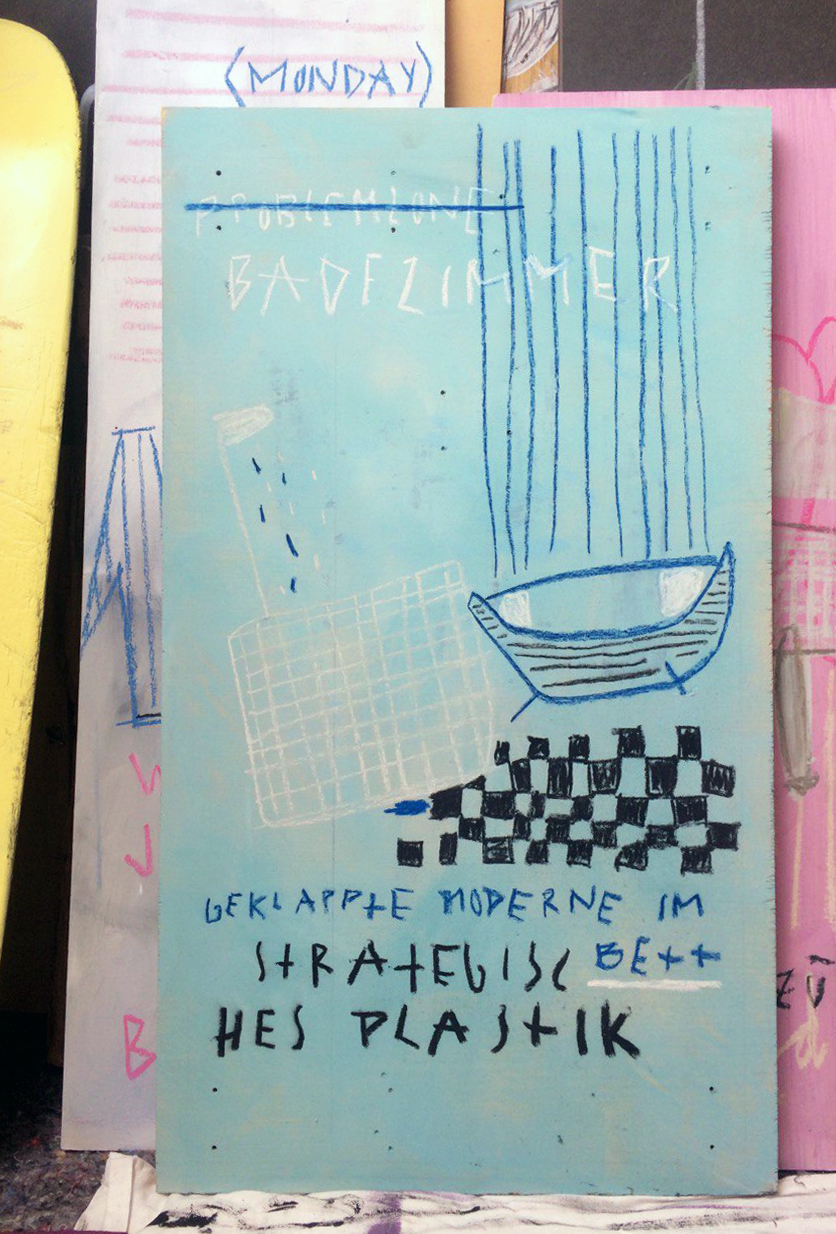 (MONDAY)
PROBLEMZONE
BADEZIMMER
GEKLAPPTE MODERNE IM
STRATEGISC BETT
HES PLASTIK